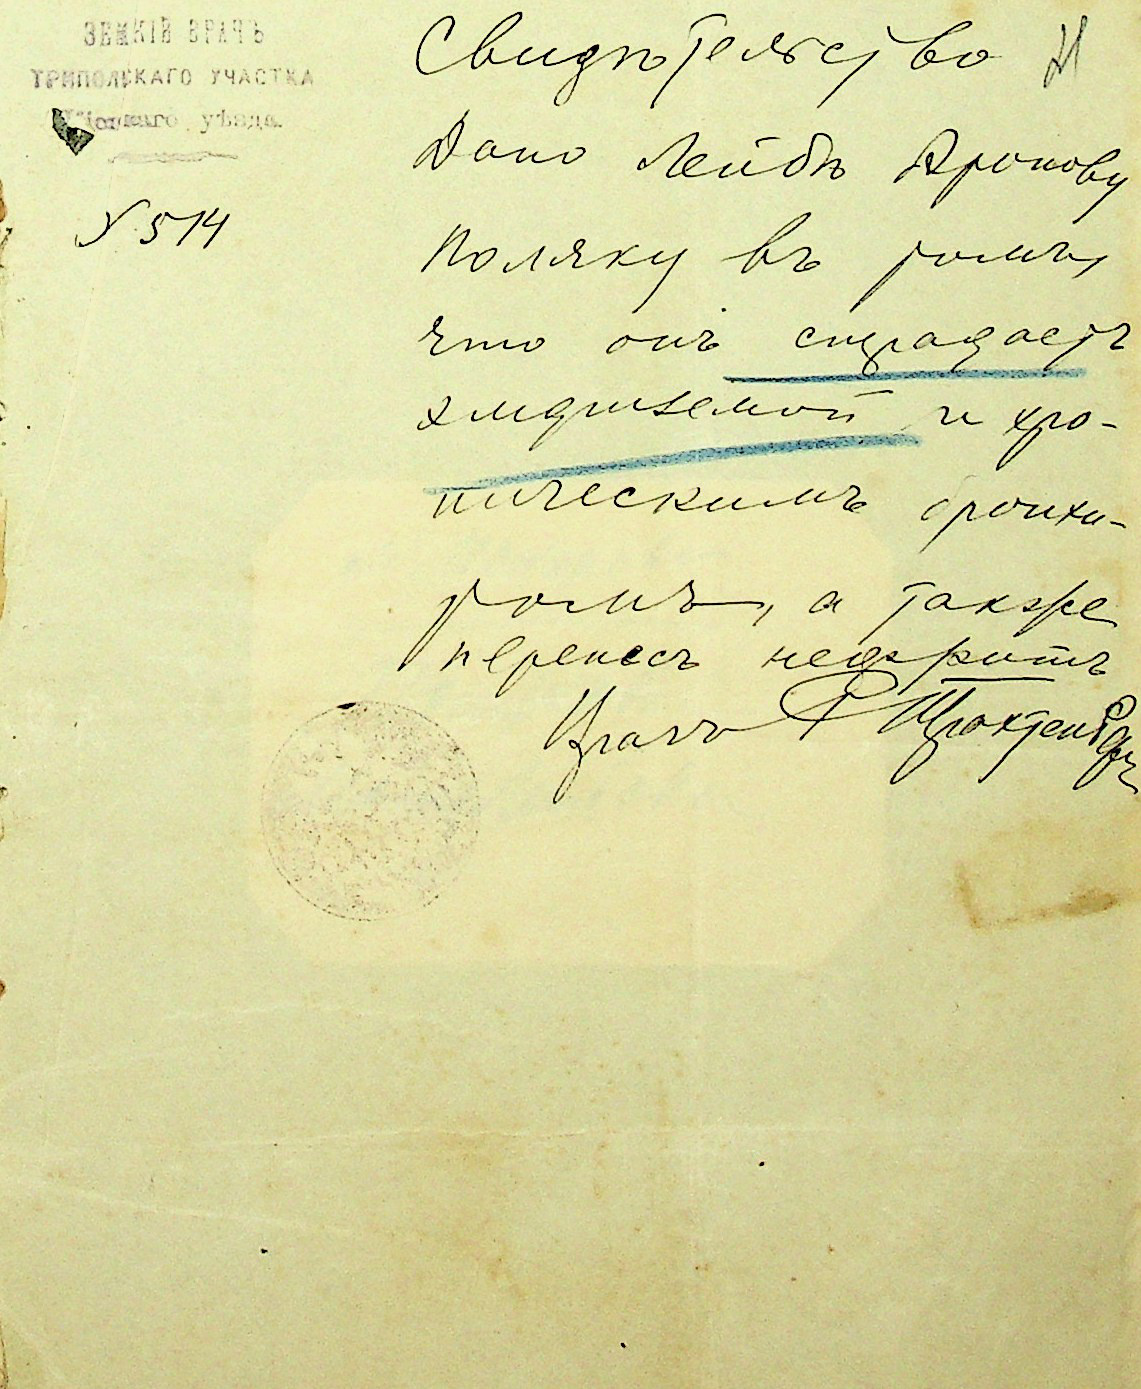 ЗЕМСКІЙ ВРАЧЪ
ТРИПОЛЬСКАГО УЧАСТКА
Кіевскаго уѣзда.
№ 514
Свидѣтельство
Дано Лейбѣ Аронову
Поляку въ томъ,
что онъ страдаетъ
эмфиземой и хро-
ническимъ бронхи-
томъ, а также
перенесъ нефритъ
Врачъ